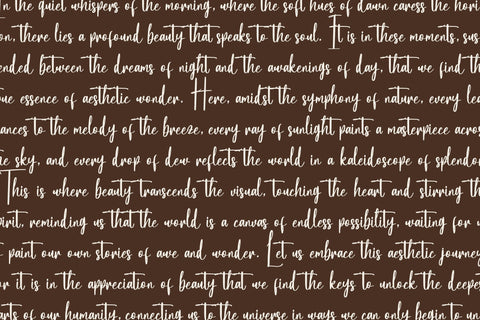 In the quiet whispers of the morning, where the soft hues of dawn caress the hori
on, there lies a profound beauty that speaks to the soul. It is in these moments, sus
ended between the dreams of night and the awakenings of day, that we find th
ue essence of aesthetic wonder. Here, amidst the symphony of nature, every lea
ances to the melody of the breeze, every ray of sunlight paints a masterpiece acros
he sky, and every drop of dew reflects the world in a kaleidoscope of splendo
This is where beauty transcends the visual, touching the heart and stirring th
pirit, reminding us that the world is a canvas of endless possibility, waiting for u
paint our own stories of awe and wonder. Let us embrace this aesthetic journey
or it is in the appreciation of beauty that we find the keys to unlock the deepes
arts of our humanity, connecting us to the universe in ways we can only begin to un